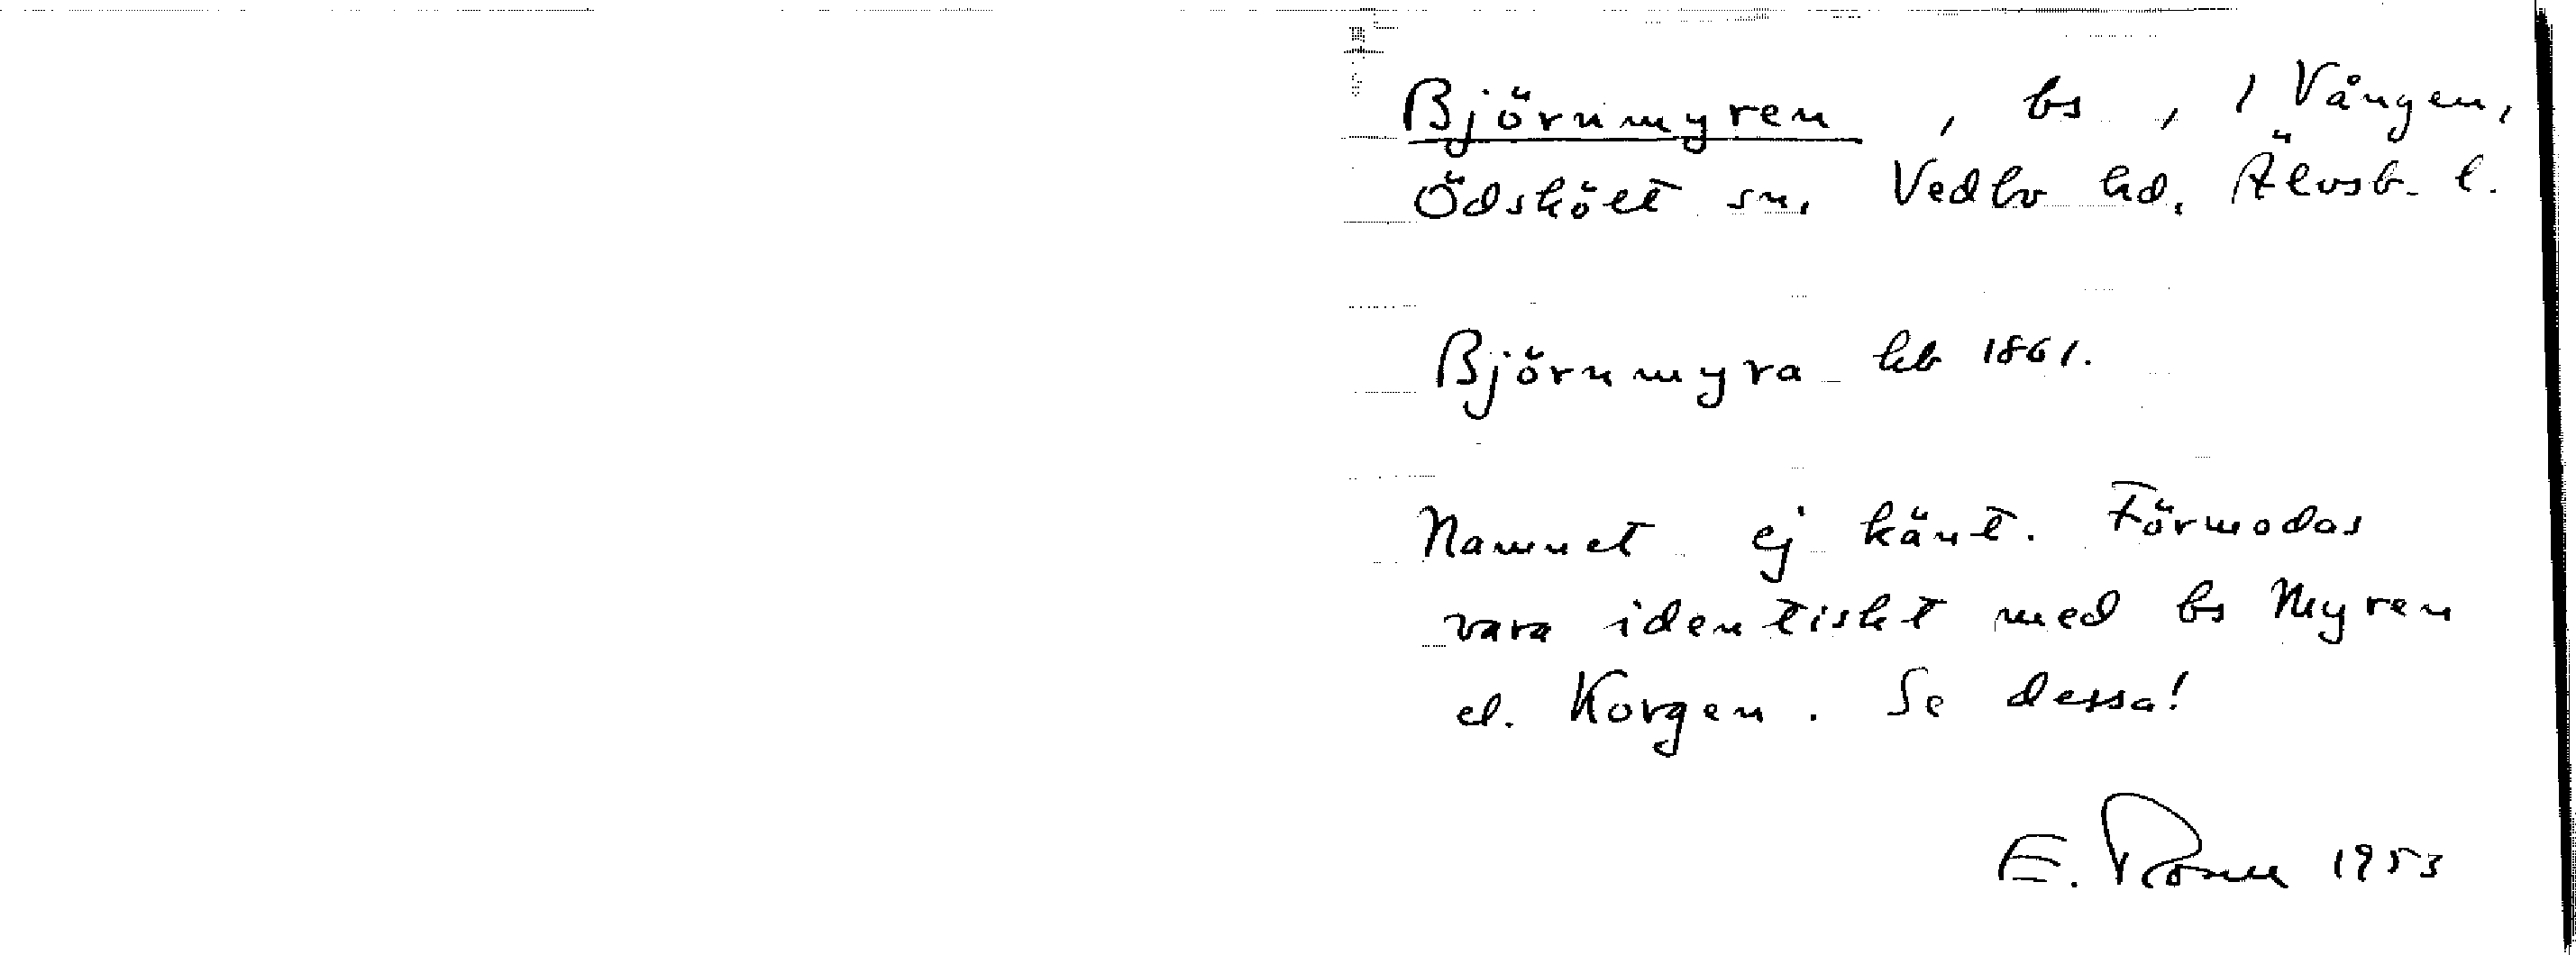 Björnmyren, bs, 1 Vången,
Ödskölt sn, Vedbo hd, Älvsb. l.
Björnmyra hb 1861.
Namnet ej känt. Förmodas
vara identiskt med bs Myren
el. Korgen. Se dessa!
E. 1953